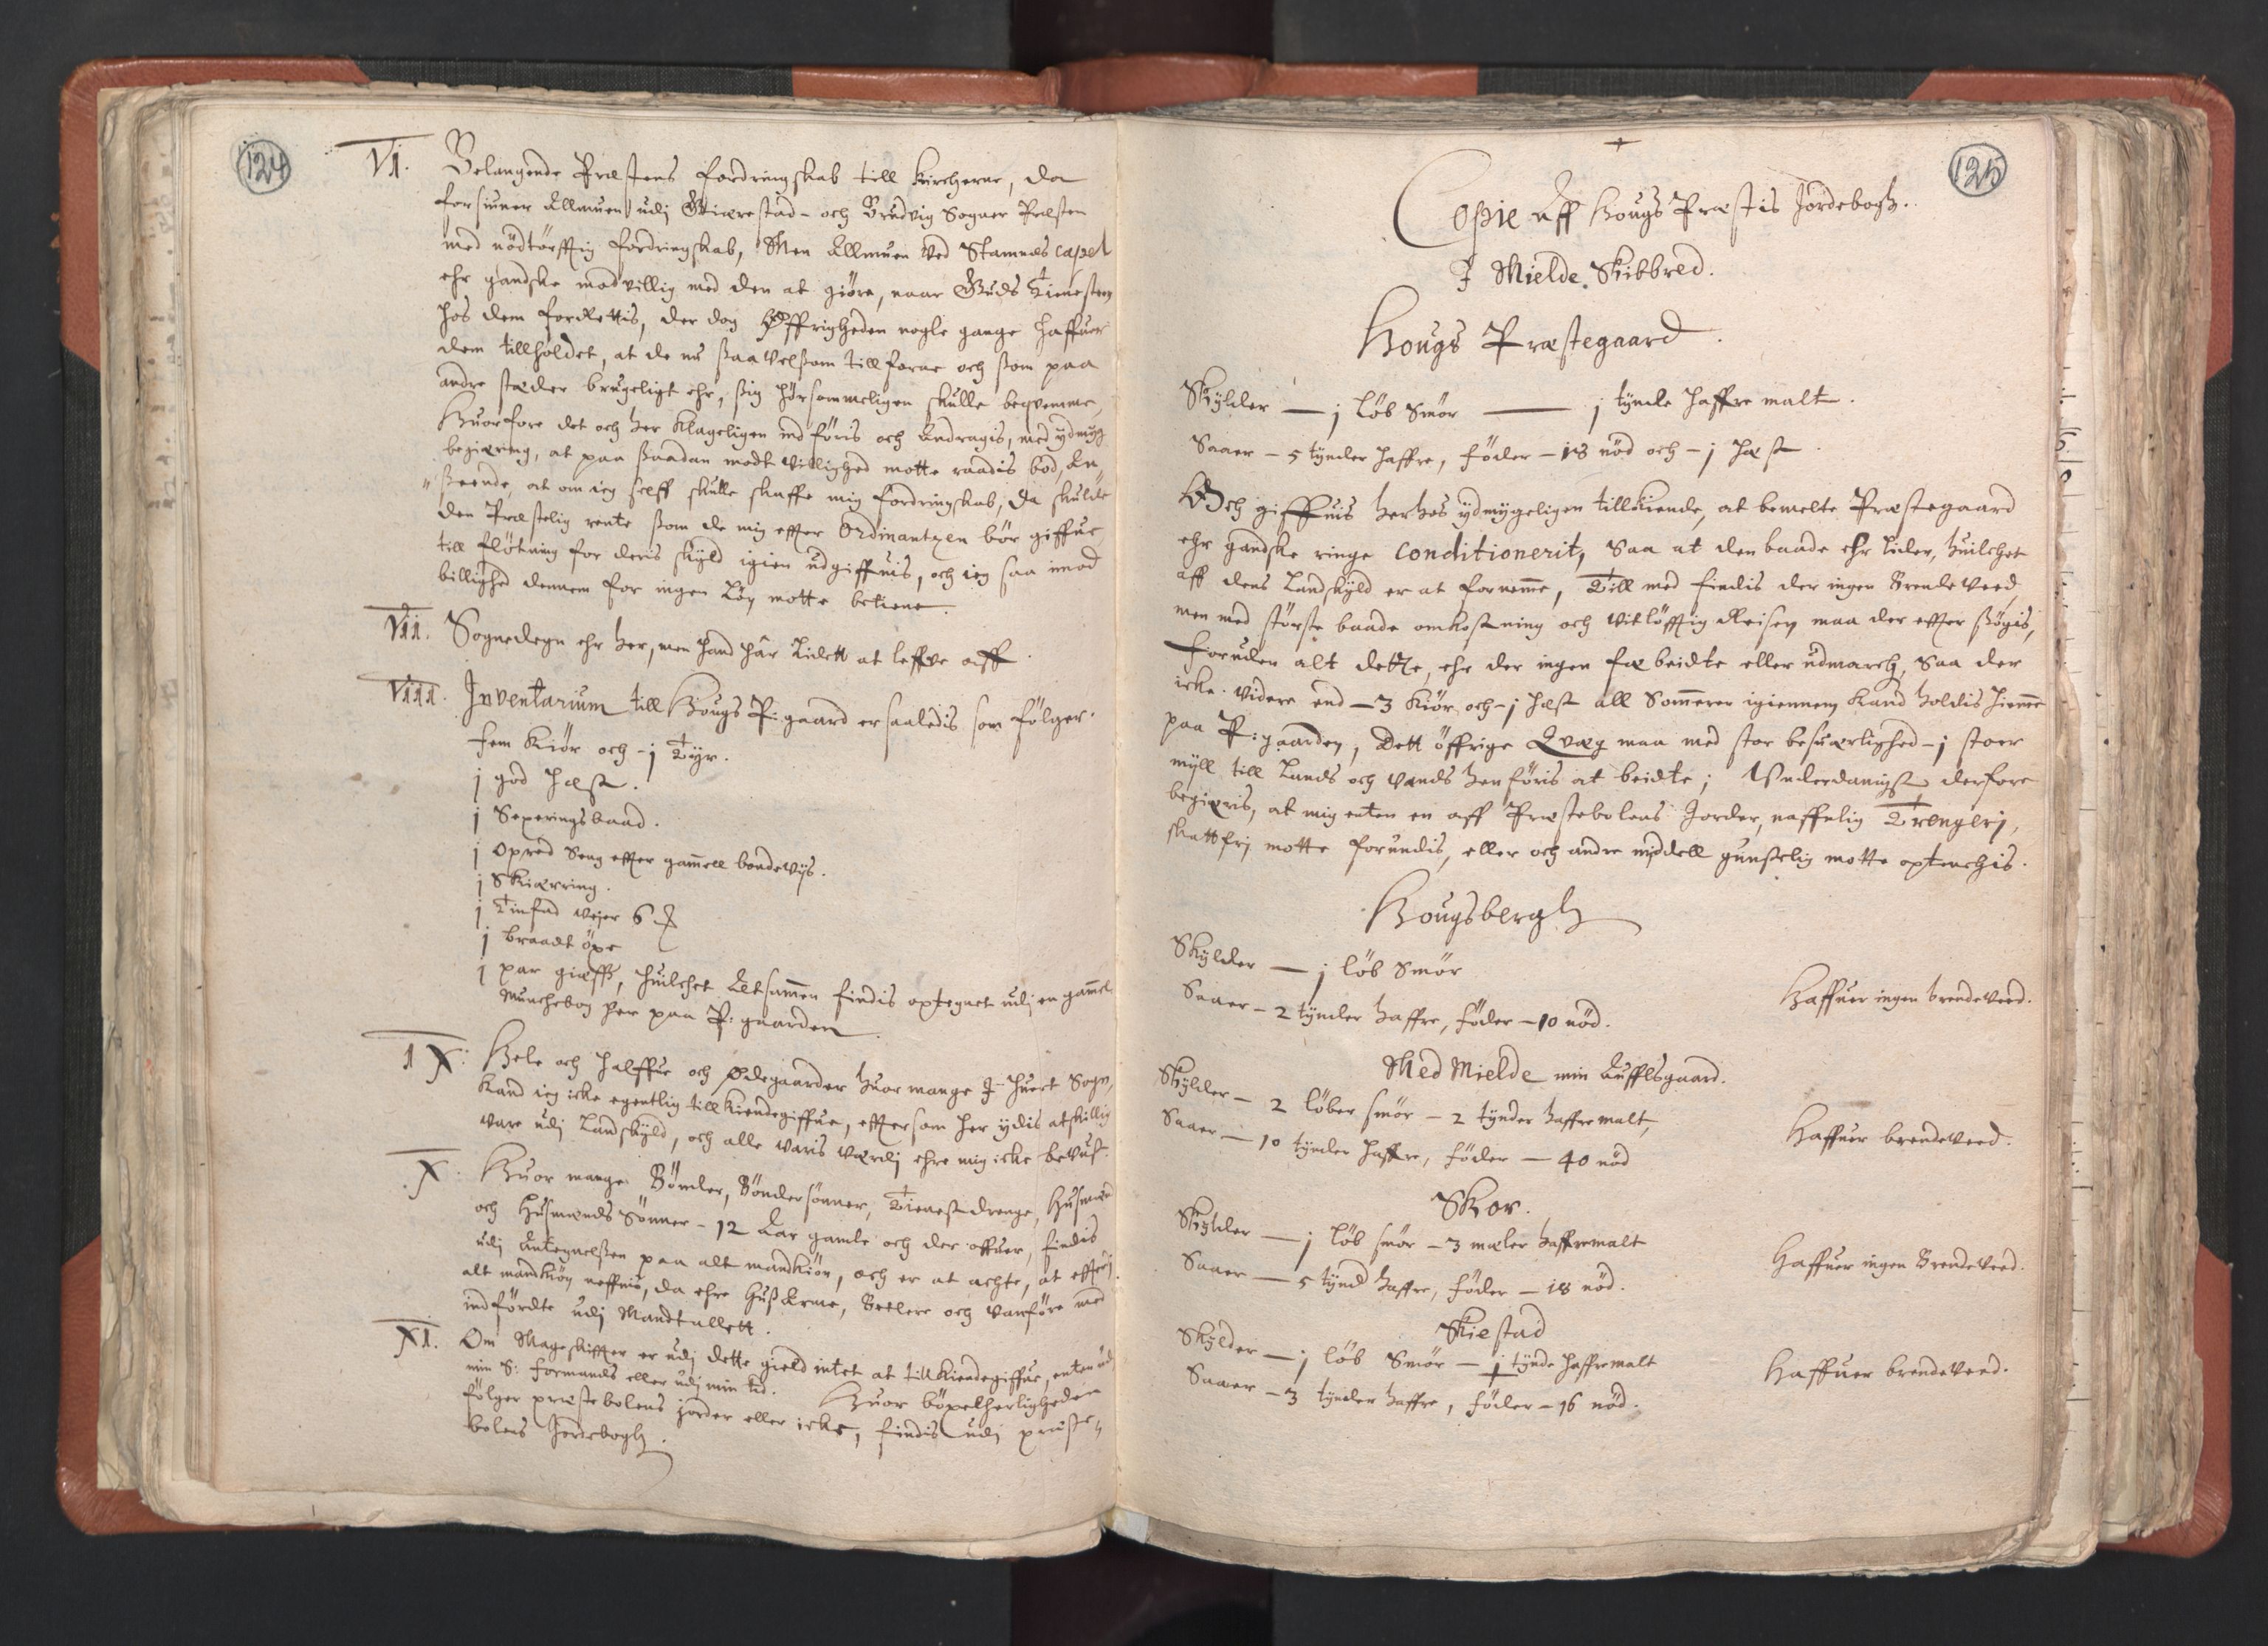 124
VI. Belangende Præstens fordringskab till kircherne, da
forsiuner Allmuen udj Giærestad- och Brudvig Sogner Præsten
med nödtörfftig fordringskab, Men Allmuen ved Stamnæs capel
ehr gandske modvillig med den at giöre, naar Guds tienesten
hos dem forrettis, der dog Øffrigheden nogle gange haffuer
dem tillholdet, at de nu saavelsom tillforne och som paa
andre stæder brugeligt ehr, sig hörsommeligen skulle beqvemme,
Huorfore det och her klageligen indföris och Andragis, med ydmyg
begiæring, at paa saadan modtvillighed motte raadis bod, An„
„seende, at om ieg selff skulle skaffe mig fordringskab, da skulde
den Præstelig rente som de mig effter Ordinantzen bör giffue
till flötning for deris skyld igien udgiffuis, och ieg saa imod
billighed dennem for ingen Løn motte betiene.
VII. Sognedegn ehr her, men hand hâr Lidett at leffve aff.
VIII. Inventarium till Hougs P: gaard er saaledis som fölger.
Fem Kiör och - j Tyr.
j god Hæst.
j Sexeringsbaad.
j opred Seng effter gammell bondevijs.
j Skiærring.
j Tinfad vejer 6 ℔
j braadt öxe
j par giæff, huilchet Altsammen findis optegnet udj en gammel
Munchebog her paa P: gaarden.
IX. Hele och halffue och Ødegaarder huor mange J- huert Sogn,
kand ieg icke egentlig tillkiendegiffue, efftersom her ydis atskillig
vare udj Landskyld, och alle varis værdj ehre mig icke bevust.
X. Huor mange Bönder, Böndersönner, Tienestdrenge, Husmænd
och Husmænds Sönner - 12 Aar gamle och der offuer, findis
udj Antegnelsen paa alt mandkiön, och er at achte, at effterj
alt mandkiön neffnis, da ehre Huß Arme, Betlere och vanföre med
indfördte udj Mandtallett.
XI. Om Mageskiffter er udj dette gield intet at tillkiendegiffue, enten udj
min S: Formands eller udj min tid. Huor böxelherligheden
fölger præstebolens jorder eller icke, findis udj præste„
bolens Jordebogh.
125
Copie Aff Hougs Præstis Jordebogh.
J Mielde Skibbred.
Hougs Præstegaard.
Skylder — j löb Smör — j tynde haffre malt.
Saaer - 5 tynder haffre, föder - 18 nöd och - j hæst.
Och giffuis herhos ydmygeligen tillkiende, at bemelte Præstegaard
ehr gandske ringe conditionerit, Saa at den baade ehr liden, huilchet
aff dens Landskyld er at fornemme, Till med findis der ingen Brendeveed,
men med störste baade omkostning och vitløfftig Reisen maa der effter sögis,
Foruden alt dette, ehr der ingen fæbeidte eller udmarch, Saa der
icke videre end - 3 Kiör och - j hæst all Sommeren igiennem kand holdis hiemme
paa P: gaarden, Dett öffrige Qvæg maa med stor besuærlighed - j stoer
myll till Lands och vands henföris at beidte; Vnderdanigst derfore
begiæris, at mig enten en aff Præstebolens Jorder, naffnlig Trengerj,
skattfrj motte forundis, eller och andre middell gunstelig motte optenchis.
Hougsbergh
Skylder — j löb Smör
Saaer - 2 tynder haffre, föder - 10 nöd. Haffuer ingen brendeveed.
Med Mielde min Auffelsgaard.
Skylder - 2 löber smör - 2 tynder haffremalt,
Saaer - 10 tynder haffre, föder - 40 nöd Haffuer brendeveed.
Skor.
Skylder — j löb smör - 3 mæler haffremalt
Saaer - 5 tynd haffre, föder - 18 nöd. Haffuer ingen Brendeveed.
Skiestad
Skylder — j löb Smör - j tynde haffremalt
Saaer - 3 tynder haffre, föder - 16 nöd. Haffuer brendeveed.